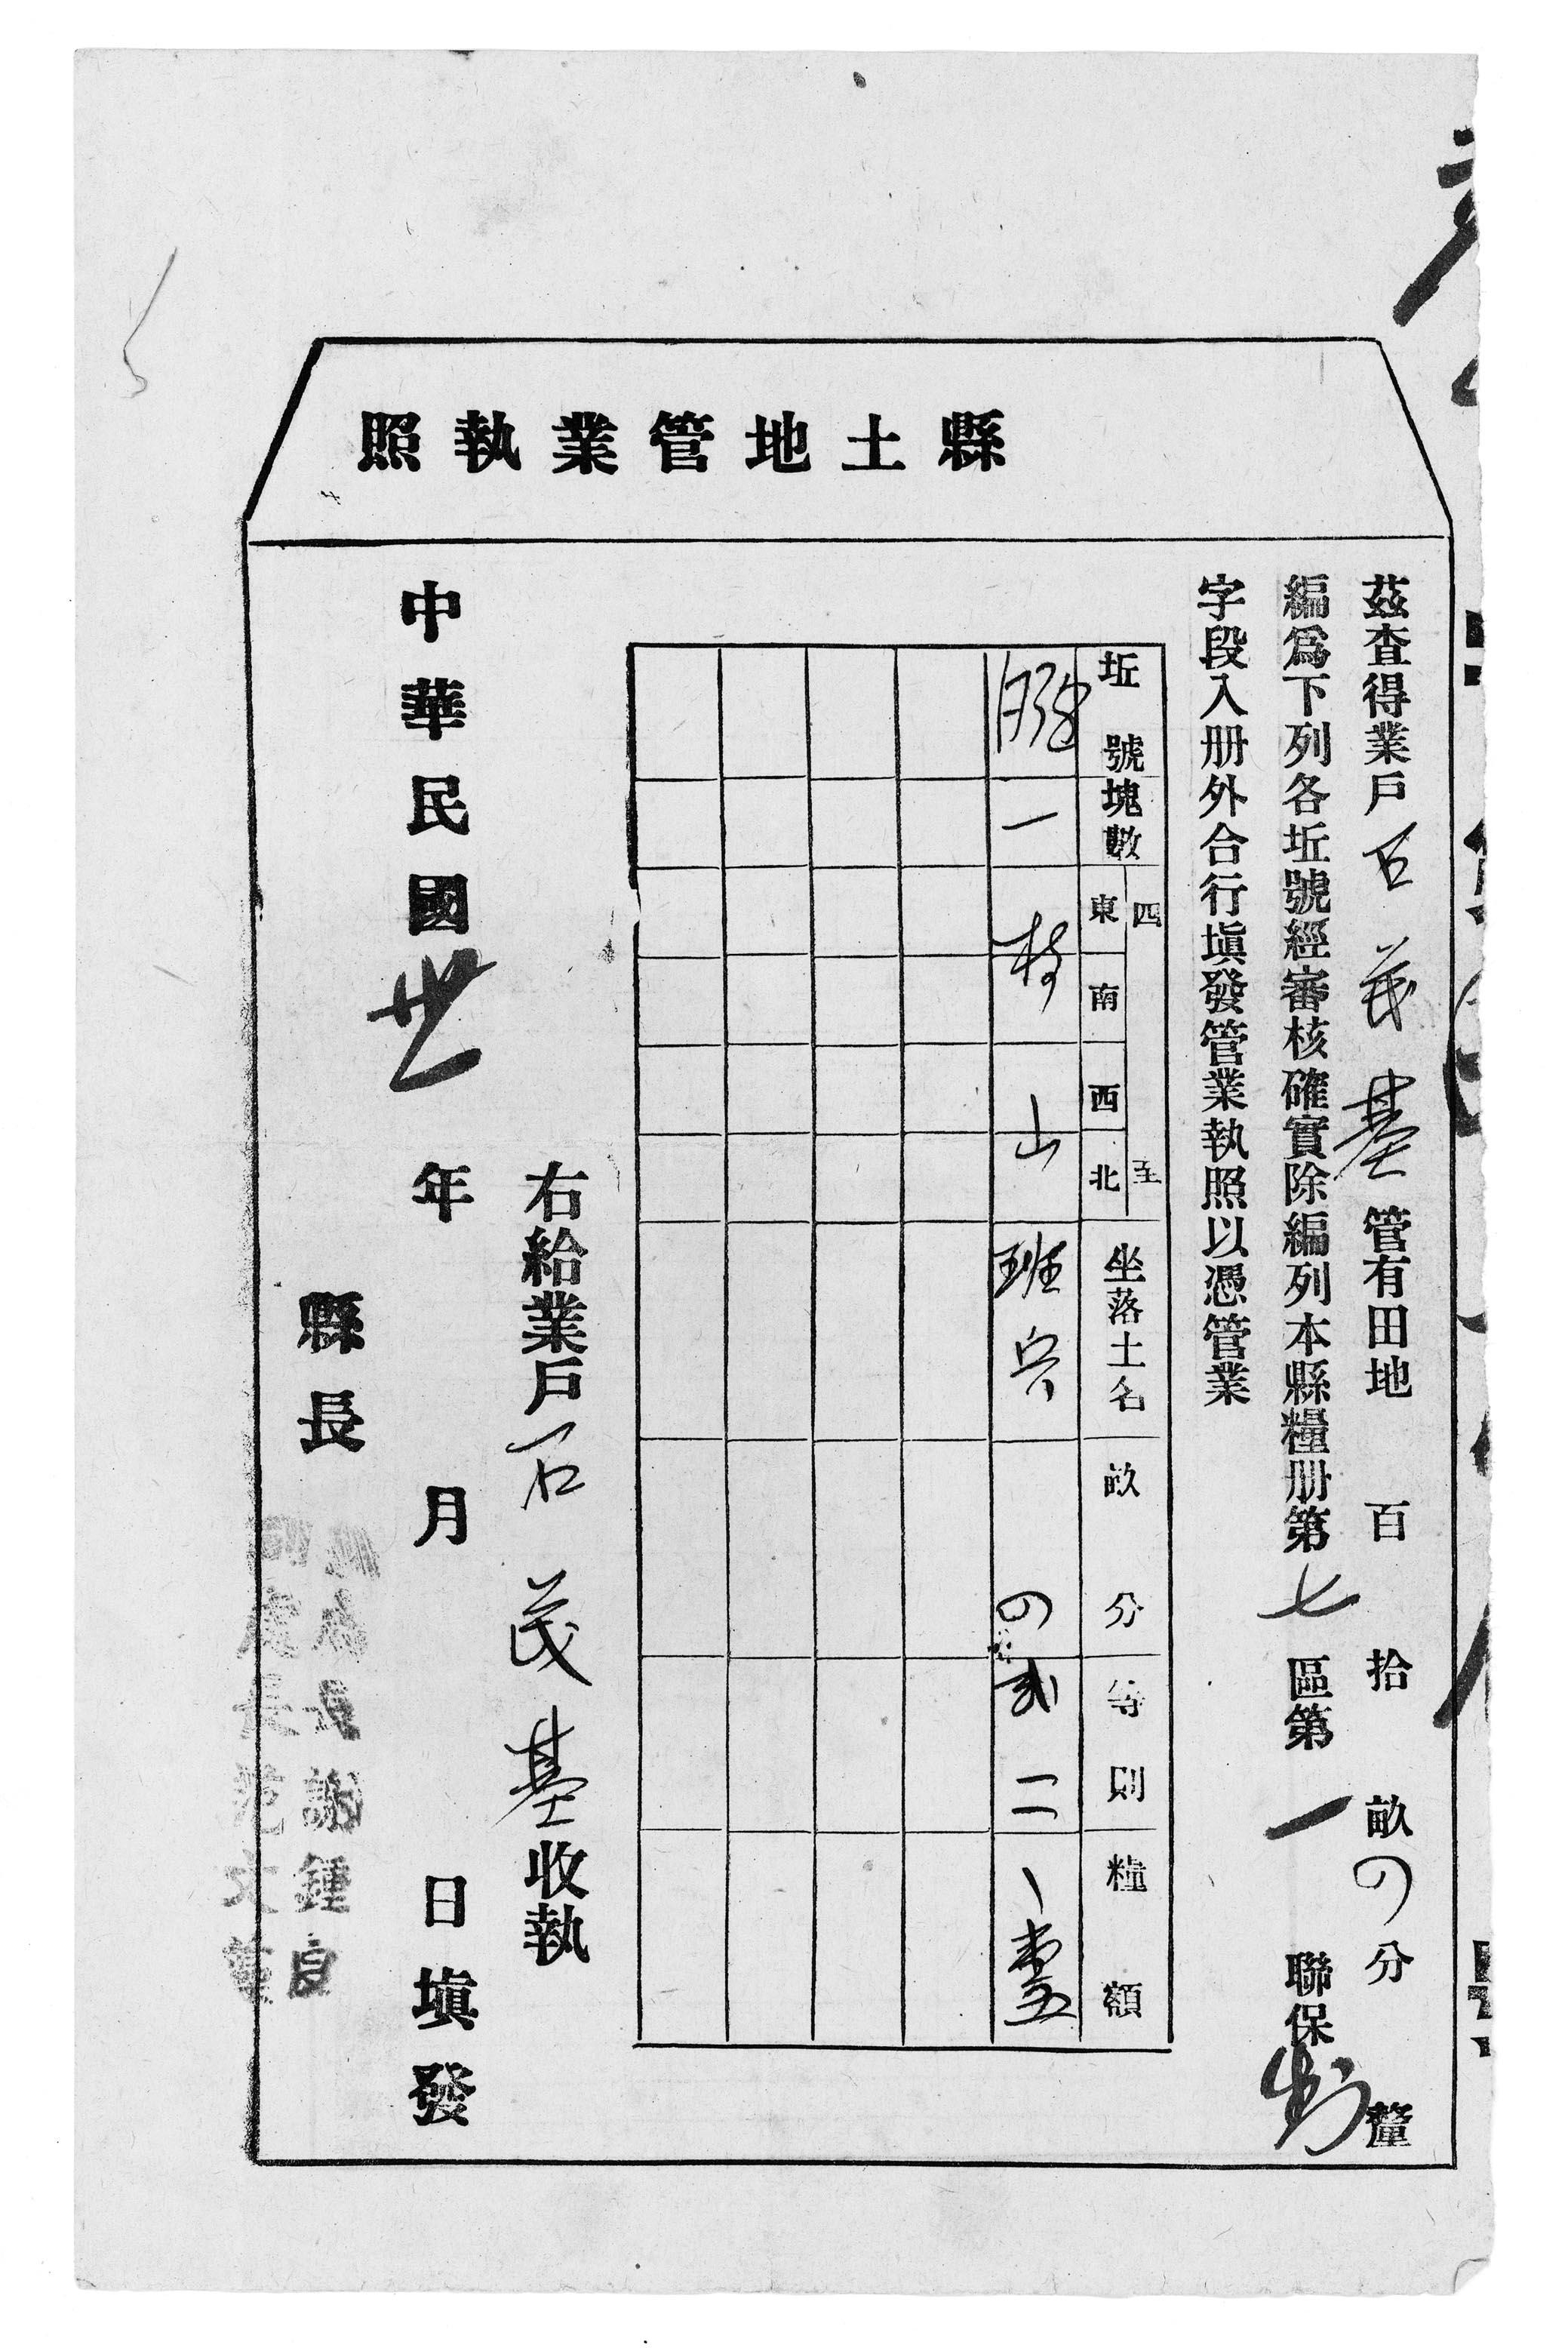 縣土地管業執照
茲查得業戶石茂基管有田地 百 拾 畝の分 釐
編爲下列各坵號經審核確實除編列本縣糧册第七區第一聯保
字段入册外合行塡發管業執照以憑管業
坵號 塊數 四至 東 南 西 北 坐落土名 畝 分 等則 糧額
一 山 の 二
右給業戶石茂基收執
中華民國卅 年 月 日塡發
縣長
謝鍾
處長范文